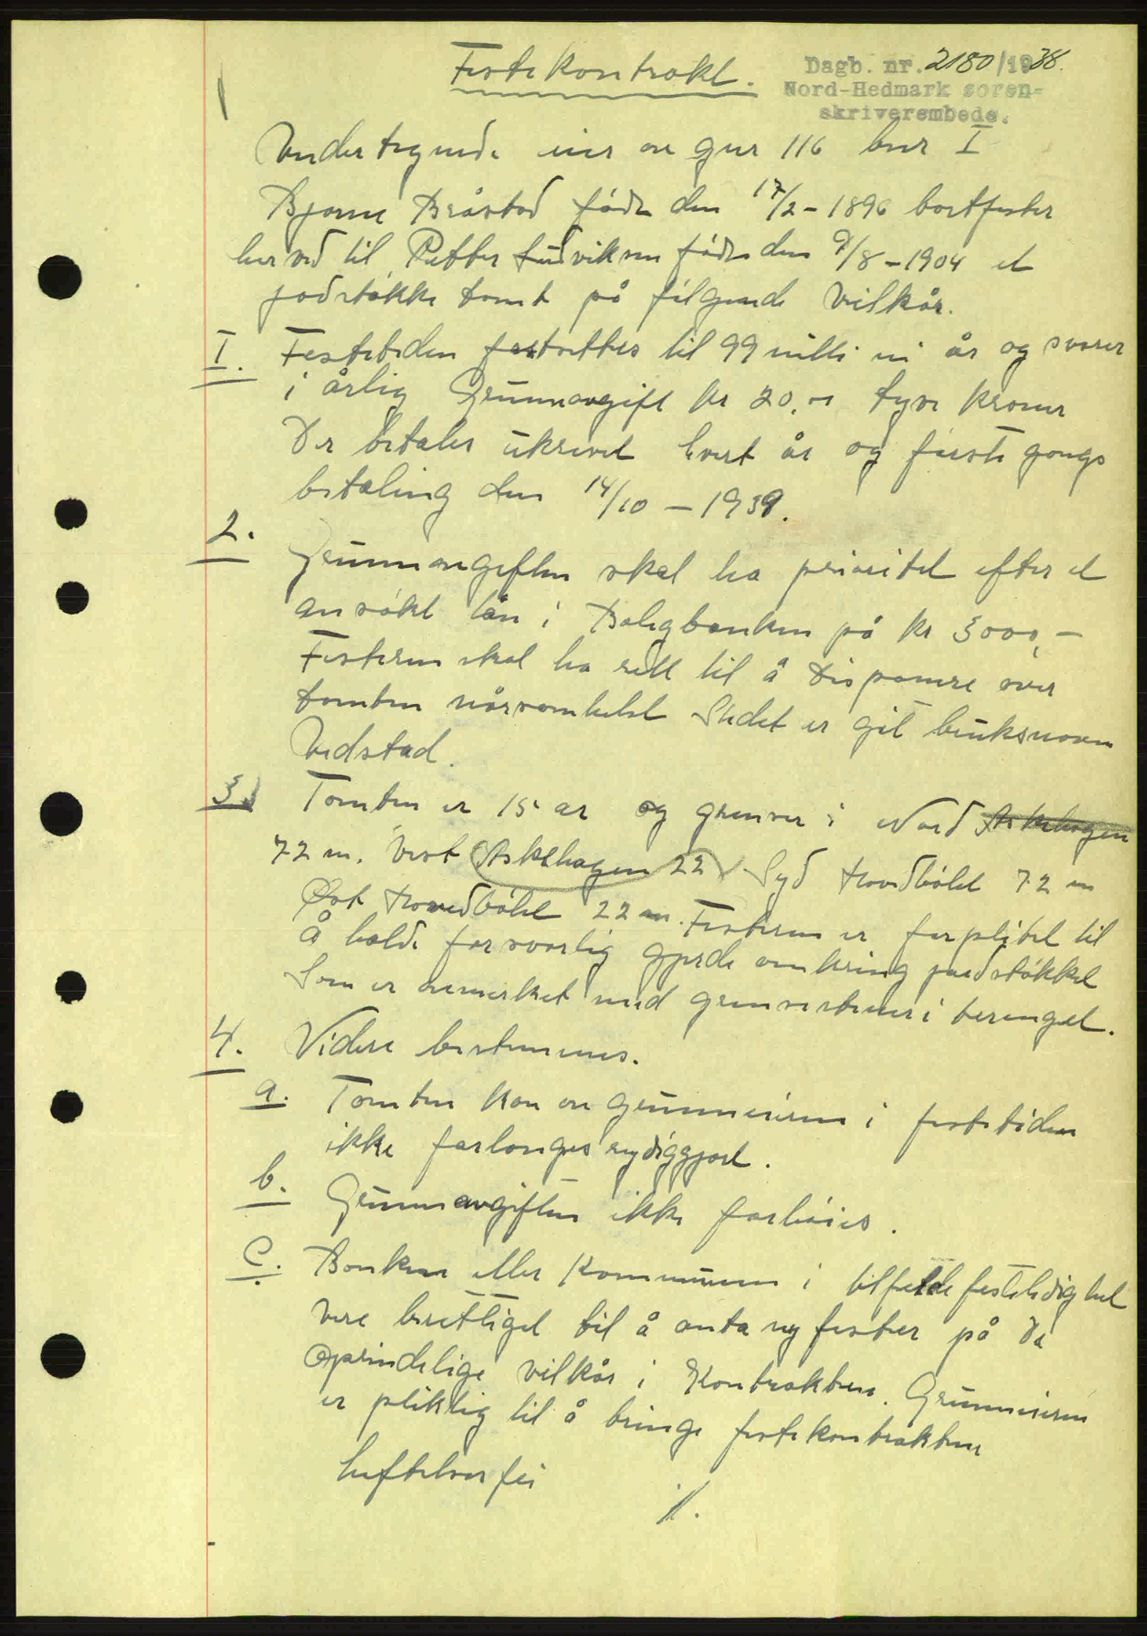 Festekontrakt.
Dagb. nr. 2180/1938.
Nord-Hedmark soren-
skriverembede.
Undertegnede eier av gnr 116 bnr I
Bjarne Bråstad född den 17/2 - 1896 bortfester
herved til Petter Ludviksen född den 9/8 - 1904 et
jordstökke tomt på fölgende Vilkår.
I. Festetiden fastsettes til 99 nitti ni år og svarer
i årlig Grunnavgift kr 20.00 tyve kroner
Der betales ukrevet hvert år og förste gangs
betaling den 14/10 - 1939.
2.
Grunnavgiften skal ha prioritet efter et
ansökt lån i Boligbanken på kr 3000,-
Festeren skal ha rett til å disponere over
tomten når somhelst Stedet er git bruksnavn
Vedstad.
3. Tomten er 15 ar og grenser i Nord Askehagen
72 m. Vest Askehagen 22 Syd Hovedbölet 72 m
Öst Hovedbölet 22 m. Festeren er forpliktet til
å holde forsvarlig gjerde omkring jordstökket
Som er avmerket med grensestener i terenget.
4. Videre bestemmes.
a. Tomten kan av Grunneieren i festetiden
ikke forlanges ryddiggjort.
b. Grunnavgiften ikke forhöies.
C. Banken eller Kommunen i tilfelde festeledighet
være berettiget til å anta ny fester på de
oprindelige vilkår i Kontrakten. Grunneieren
er pliktig til å bringe festekontrakten
heftelsesfri